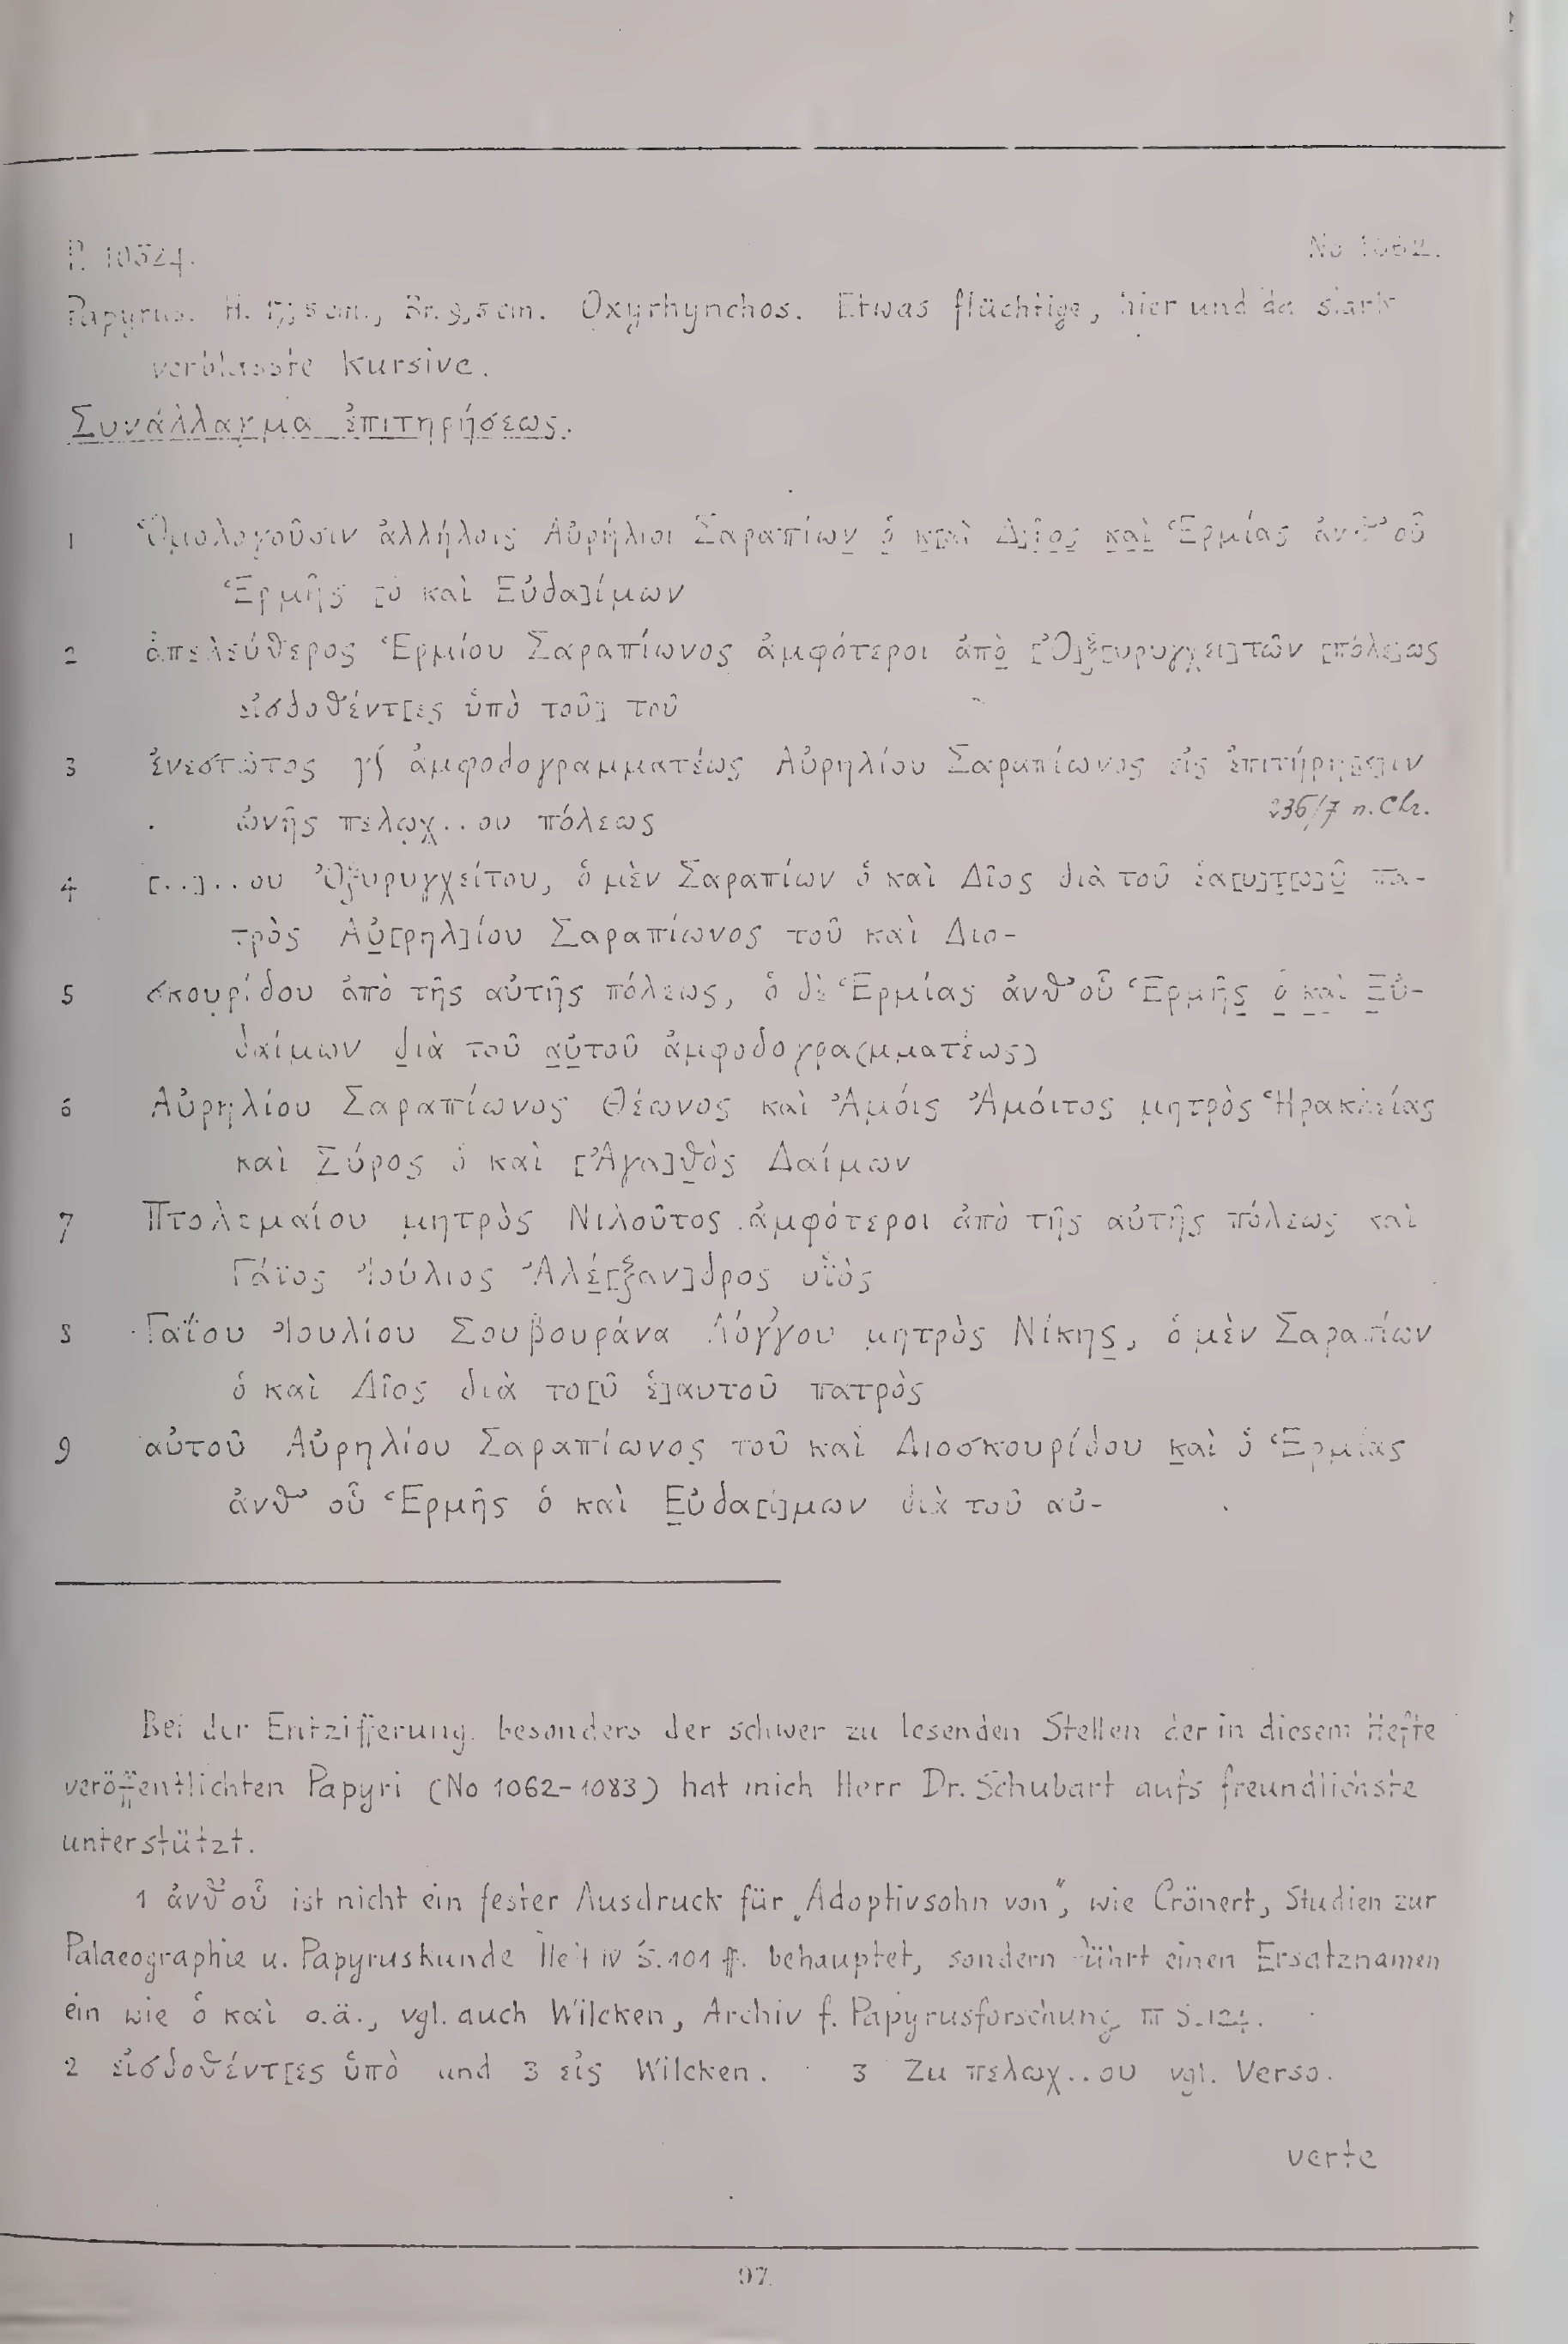 P. 10524. No 1062.
Papyrus. H. 17,5 cm., Br. 9,5 cm. Oxyrhynchos. Etwas flüchtige, hier und da stark
verblasste Kursive.
Συνάλλαγμα ἐπιτηρήσεως.
1 Ὁμολογοῦσιν ἀλλήλοις Αὐρήλιοι Σαραπίων̣ ὁ̣ κ̣[α]ὶ Δ[ῖο]ς̣ κ̣α̣ὶ̣ Ἑρμίας ἀνθ' οὗ
Ἑρμῆς [ὁ καὶ Εὐδα]ίμων
2 ἀπελεύθερος Ἑρμίου Σαραπίωνος ἀμφότεροι ἀπὸ̣ [Ὀ]ξ̣[υρυγχει]τῶν [πόλε]ως
εἰσδοθέντ[ες ὑπὸ τοῦ] τοῦ
3 ἐνεστῶτος γ∫ ἀμφοδογραμματέως Αὐρηλίου Σαραπίωνος εἰς ἐπιτήρη[σ]ιν
ὠνῆς πελω̣χ̣..ου πόλεως 236/7 n. Chr.
4 [..]..ου Ὀξυρυγχείτου, ὁ μὲν Σαραπίων ὁ καὶ Δῖος διὰ τοῦ ἑα[υ]τ̣[ο]ῦ̣ πα-
τρὸς Αὐ̣[ρηλ]ίου Σαραπίωνος τοῦ καὶ Διο-
5 σκουρίδου ἀπὸ τῆς αὐτῆς πόλεως, ὁ δὲ Ἑρμίας ἀνθ' οὗ Ἑρμῆς̣ ὁ̣ κ̣α̣ὶ Ε̣ὐ̣-
δαίμων δ̣ιὰ τοῦ α̣ὐ̣τοῦ ἀμφοδογρα(μματέως)
6 Αὐρηλίου Σαραπίωνος Θέωνος καὶ Ἀμόις Ἀμόιτος μητρὸς Ἡρακλείας
καὶ Σύρος ὁ καὶ [Ἀγα]θ̣ὸς Δαίμων
7 Πτολεμαίου μητρὸς Νιλοῦτος ἀμφότεροι ἀπὸ τῆς αὐτῆς πόλεως καὶ
Γάϊος Ἰούλιος Ἀλέ̣[ξαν]δρος υἱὸς
8 Γαΐου Ἰουλίου Σουβουράνα Λόγ'γου μητρὸς Νίκης̣, ὁ μὲν Σαραπίων
ὁ καὶ Δῖος διὰ το[ῦ ἑ]αυτοῦ πατρὸς
9 αὐτοῦ Αὐρηλίου Σαραπίωνος τοῦ καὶ Διοσκουρίδου κ̣αὶ ὁ Ἑρμίας
ἀνθ' οὗ Ἑρμῆς ὁ καὶ Ε̣ὐδα[ί]μων διὰ τοῦ αὐ-
Bei der Entzifferung besonders der schwer zu lesenden Stellen der in diesem Hefte
veröffentlichten Papyri (No 1062-1083) hat mich Herr Dr. Schubart aufs freundlichste
unterstützt.
1 ἀνθ' οὗ ist nicht ein fester Ausdruck für „Adoptivsohn von", wie Crönert, Studien zur
Palaeographie u. Papyruskunde Heft IV S. 101 ff. behauptet, sondern führt einen Ersatznamen
ein wie ὁ καὶ o.ä., vgl. auch Wilcken, Archiv f. Papyrusforschung
2 εἰσδοθέντ[ες ὑπὸ und 3 εἰς Wilcken. 3 Zu πελωχ..ου vgl. Verso.
verte
97